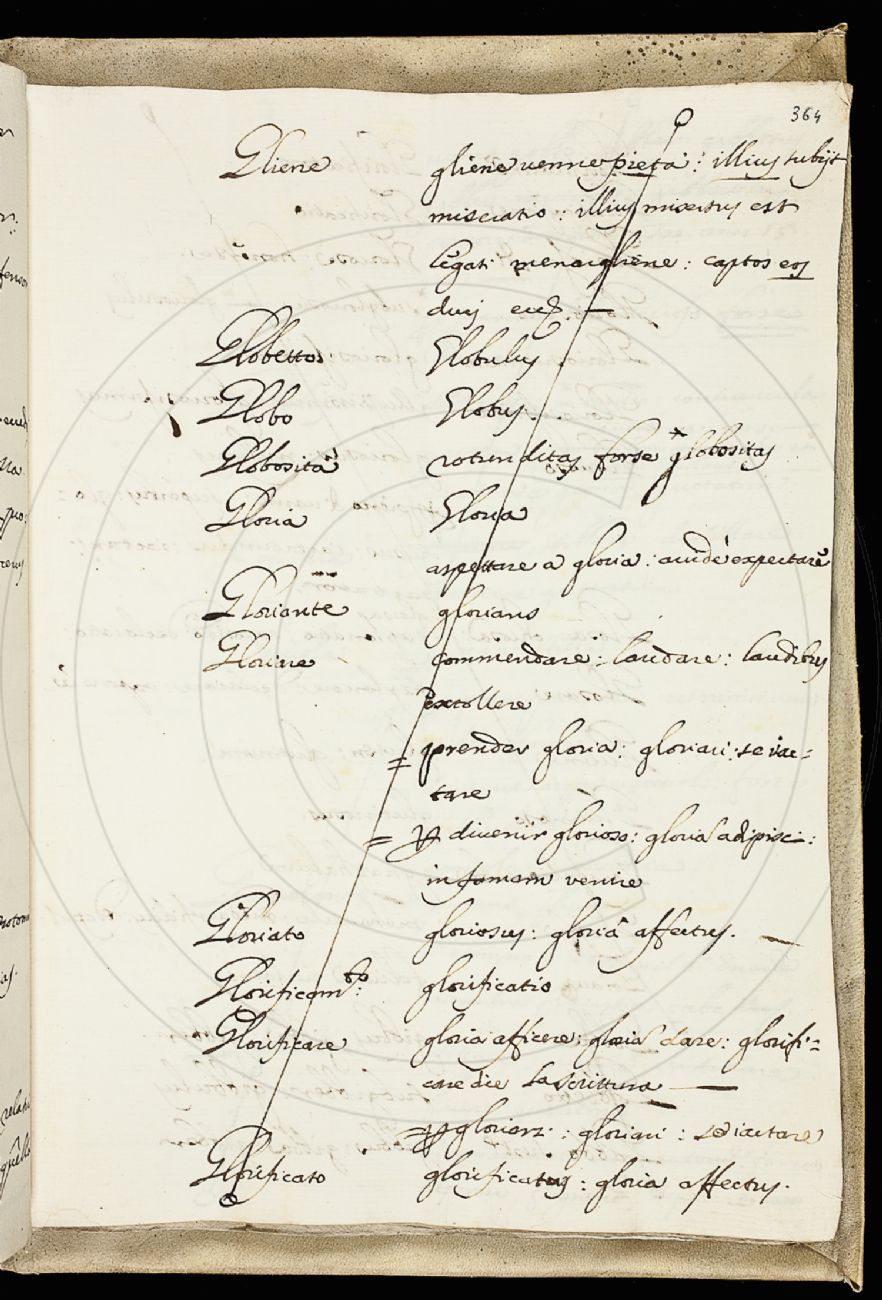 364
Gliene gliene venne pietà: illius subijt
miseratio: illius misertus est
legati menargliene: captos eos
Globettos Globulus
Globo Globus.
Globosità rotunditas forse globositas
Gloria Gloria
aspettare a gloria: auidè expectare
Gloriante glorians
Gloriare commendare: laudare: laudibus
extollere
= prender gloria: gloriari: se iac=
tare
= divenir glorioso: gloriâ adipisci:
in famam venire
Gloriato gloriosus: gloriâ affectus.
Glorificam.to: glorificatio
Glorificare gloria afficere: gloriâ dare: glorifi=
care die la scrittura
= gloriarz.: gloriari: se iactare
Glorificato glorificatus: gloria affectus.